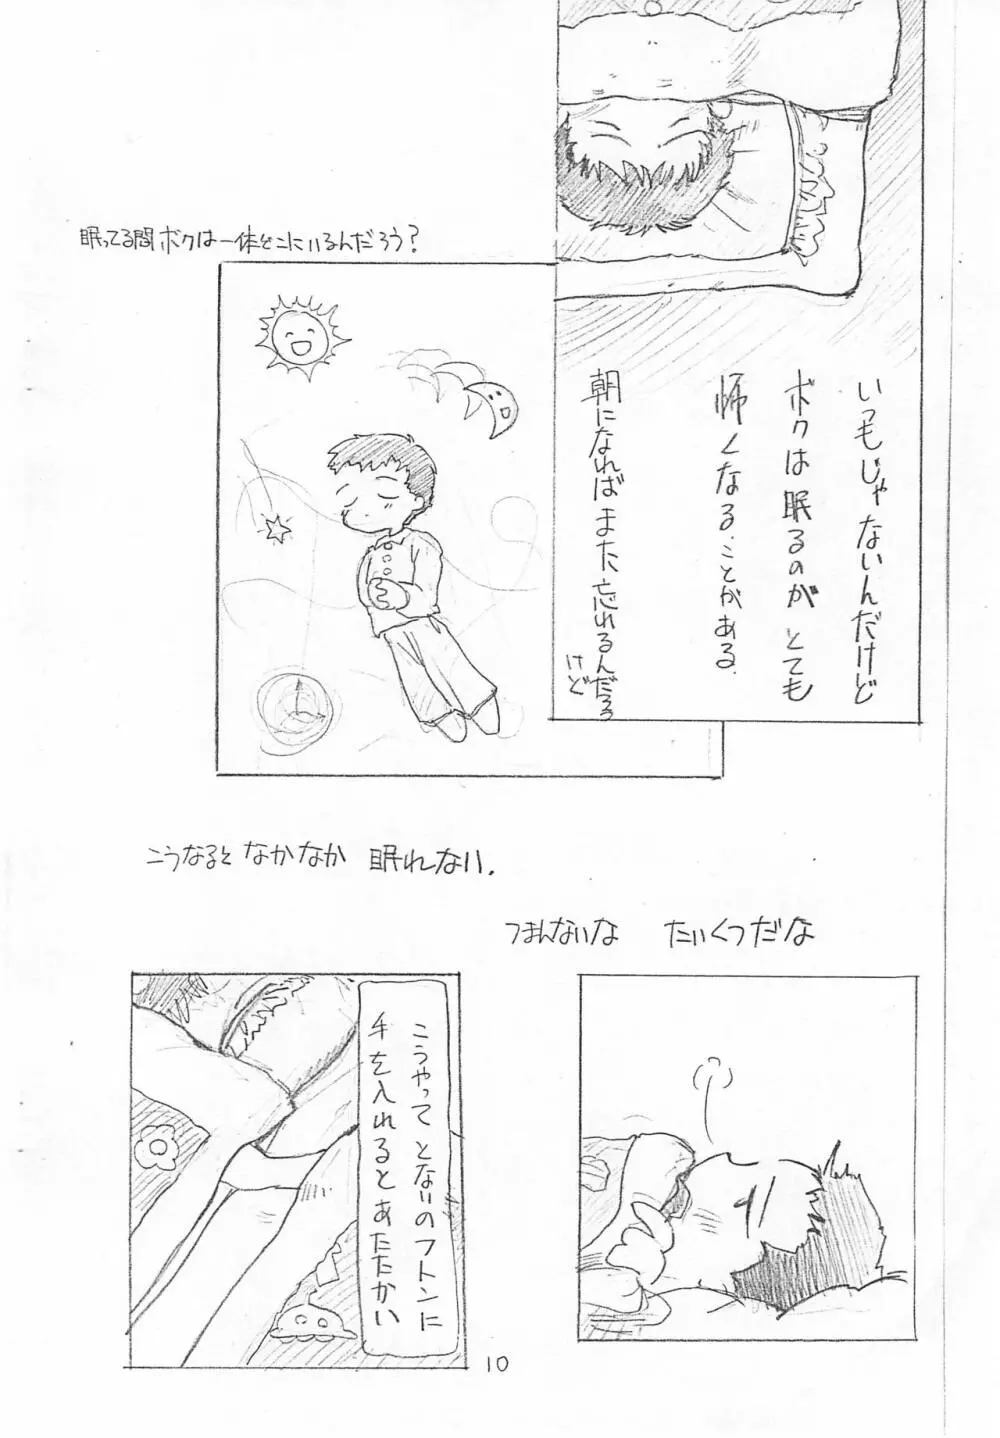 いつもじゃないんだけど
ボクは眠るのがとても
怖くなることがある.
朝になればまた、忘れるんだろう
けど
眠ってる間ボクは一体どこにいるんだろう?
こうなると なかなか 眠れない.
つまんないな たいくつだな
こうやって とないのフトンに
手を入れるとあたたかい
10